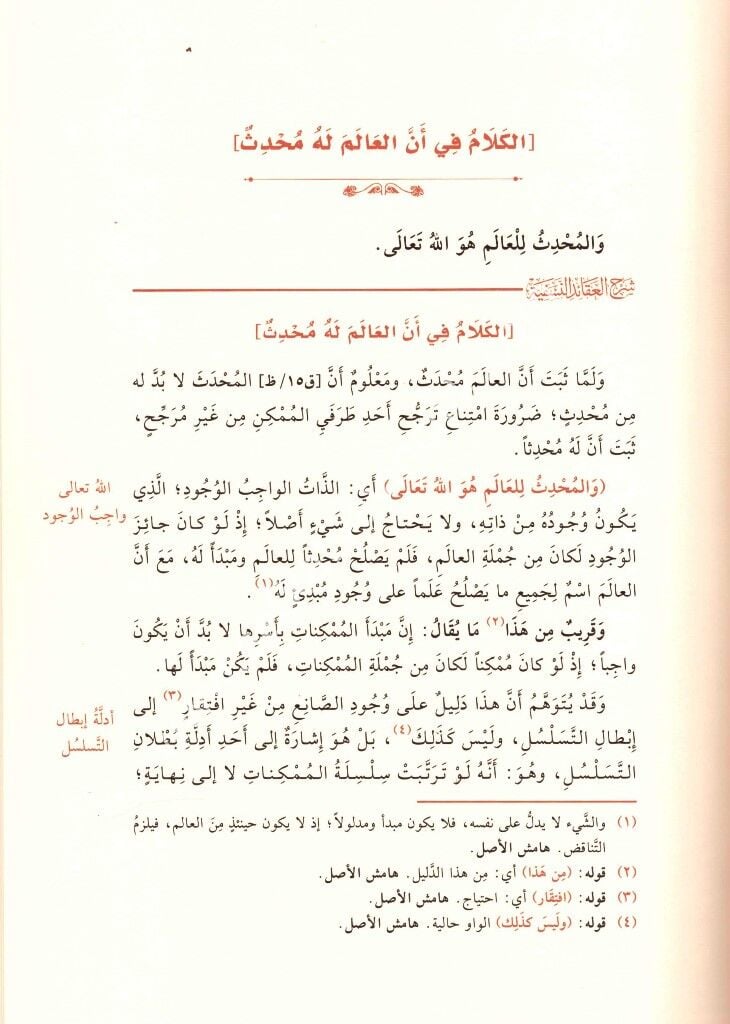 [الكَلَامُ فِي أَنَّ العَالَمَ لَهُ مُحْدِثٌ]
وَالمُحْدِثُ لِلْعَالَمِ هُوَ اللهُ تَعَالَى.
شرح العقائد النسفية
[الكَلَامُ فِي أَنَّ العَالَمَ لَهُ مُحْدِثٌ]
وَلَمَّا ثَبَتَ أَنَّ العالَمَ مُحْدَثٌ، ومَعْلُومٌ أَنَّ [ق١٥/ظ] المُحْدَثَ لا بُدَّ له
مِن مُحْدِثٍ؛ ضَرُورَةَ امْتِناعِ تَرَجُّحِ أَحَدِ طَرَفَيِ المُمْكِنِ مِن غَيْرِ مُرَجِّحٍ،
ثَبَتَ أَنَّ لَهُ مُحْدِثاً.
(وَالمُحْدِثُ لِلعَالَمِ هُوَ اللهُ تَعَالَى) أَي: الذَّاتُ الواجِبُ الوُجُودِ؛ الَّذِي
يَكُونُ وُجُودُهُ مِنْ ذاتِهِ، ولا يَحْتاجُ إلى شَيْءٍ أَصْلاً؛ إِذْ لَو كانَ جائِزَ
الوُجُودِ لَكانَ مِن جُمْلَةِ العالَمِ، فَلَمْ يَصْلُحْ مُحْدِثاً لِلعالَمِ ومَبْدَأً لَهُ، مَعَ أَنَّ
العالَمَ اسْمٌ لِجَمِيعِ ما يَصْلُحُ عَلَماً على وُجُودِ مُبْدِئٍ لَهُ(١).
الله تعالى
واجِبُ الوُجود
وَقَرِيبٌ مِن هَذَا(٢) مَا يُقَالُ: إِنَّ مَبْدَأَ المُمْكِناتِ بِأَسْرِها لا بُدَّ أَنْ يَكُونَ
واجِباً؛ إِذْ لَوْ كانَ مُمْكِناً لَكانَ مِن جُمْلَةِ المُمْكِناتِ، فَلَمْ يَكُنْ مَبْدَأً لَها.
وَقَدْ يُتَوَهَّمُ أَنَّ هذا دَلِيلٌ على وُجُودِ الصَّانِعِ مِنْ غَيْرِ افْتِقارٍ(٣) إلى
إِبْطالِ التَّسَلْسُلِ، ولَيْسَ كَذَلِكَ(٤)، بَلْ هُوَ إِشارَةٌ إلى أَحَدِ أَدِلَّةِ بُطْلانِ
التَّسَلْسُلِ، وهُوَ: أَنَّهُ لَوْ تَرَتَّبَتْ سِلْسِلَةُ المُمْكِناتِ لا إلى نِهايَةٍ؛
أدلَّةُ إبطال
التَّسلسُل
(١) والشَّيء لا يدلُّ على نفسه، فلا يكون مبدأ ومدلولاً؛ إذ لا يكون حينئذٍ مِنَ العالم، فيلزمُ
التَّناقض. هامش الأصل.
(٢) قوله: (مِن هَذا) أي: مِن هذا الدَّليل. هامش الأصل.
(٣) قوله: (افتِقَار) أي: احتياج. هامش الأصل.
(٤) قوله: (ولَيسَ كذَلِك) الواو حالية. هامش الأصل.